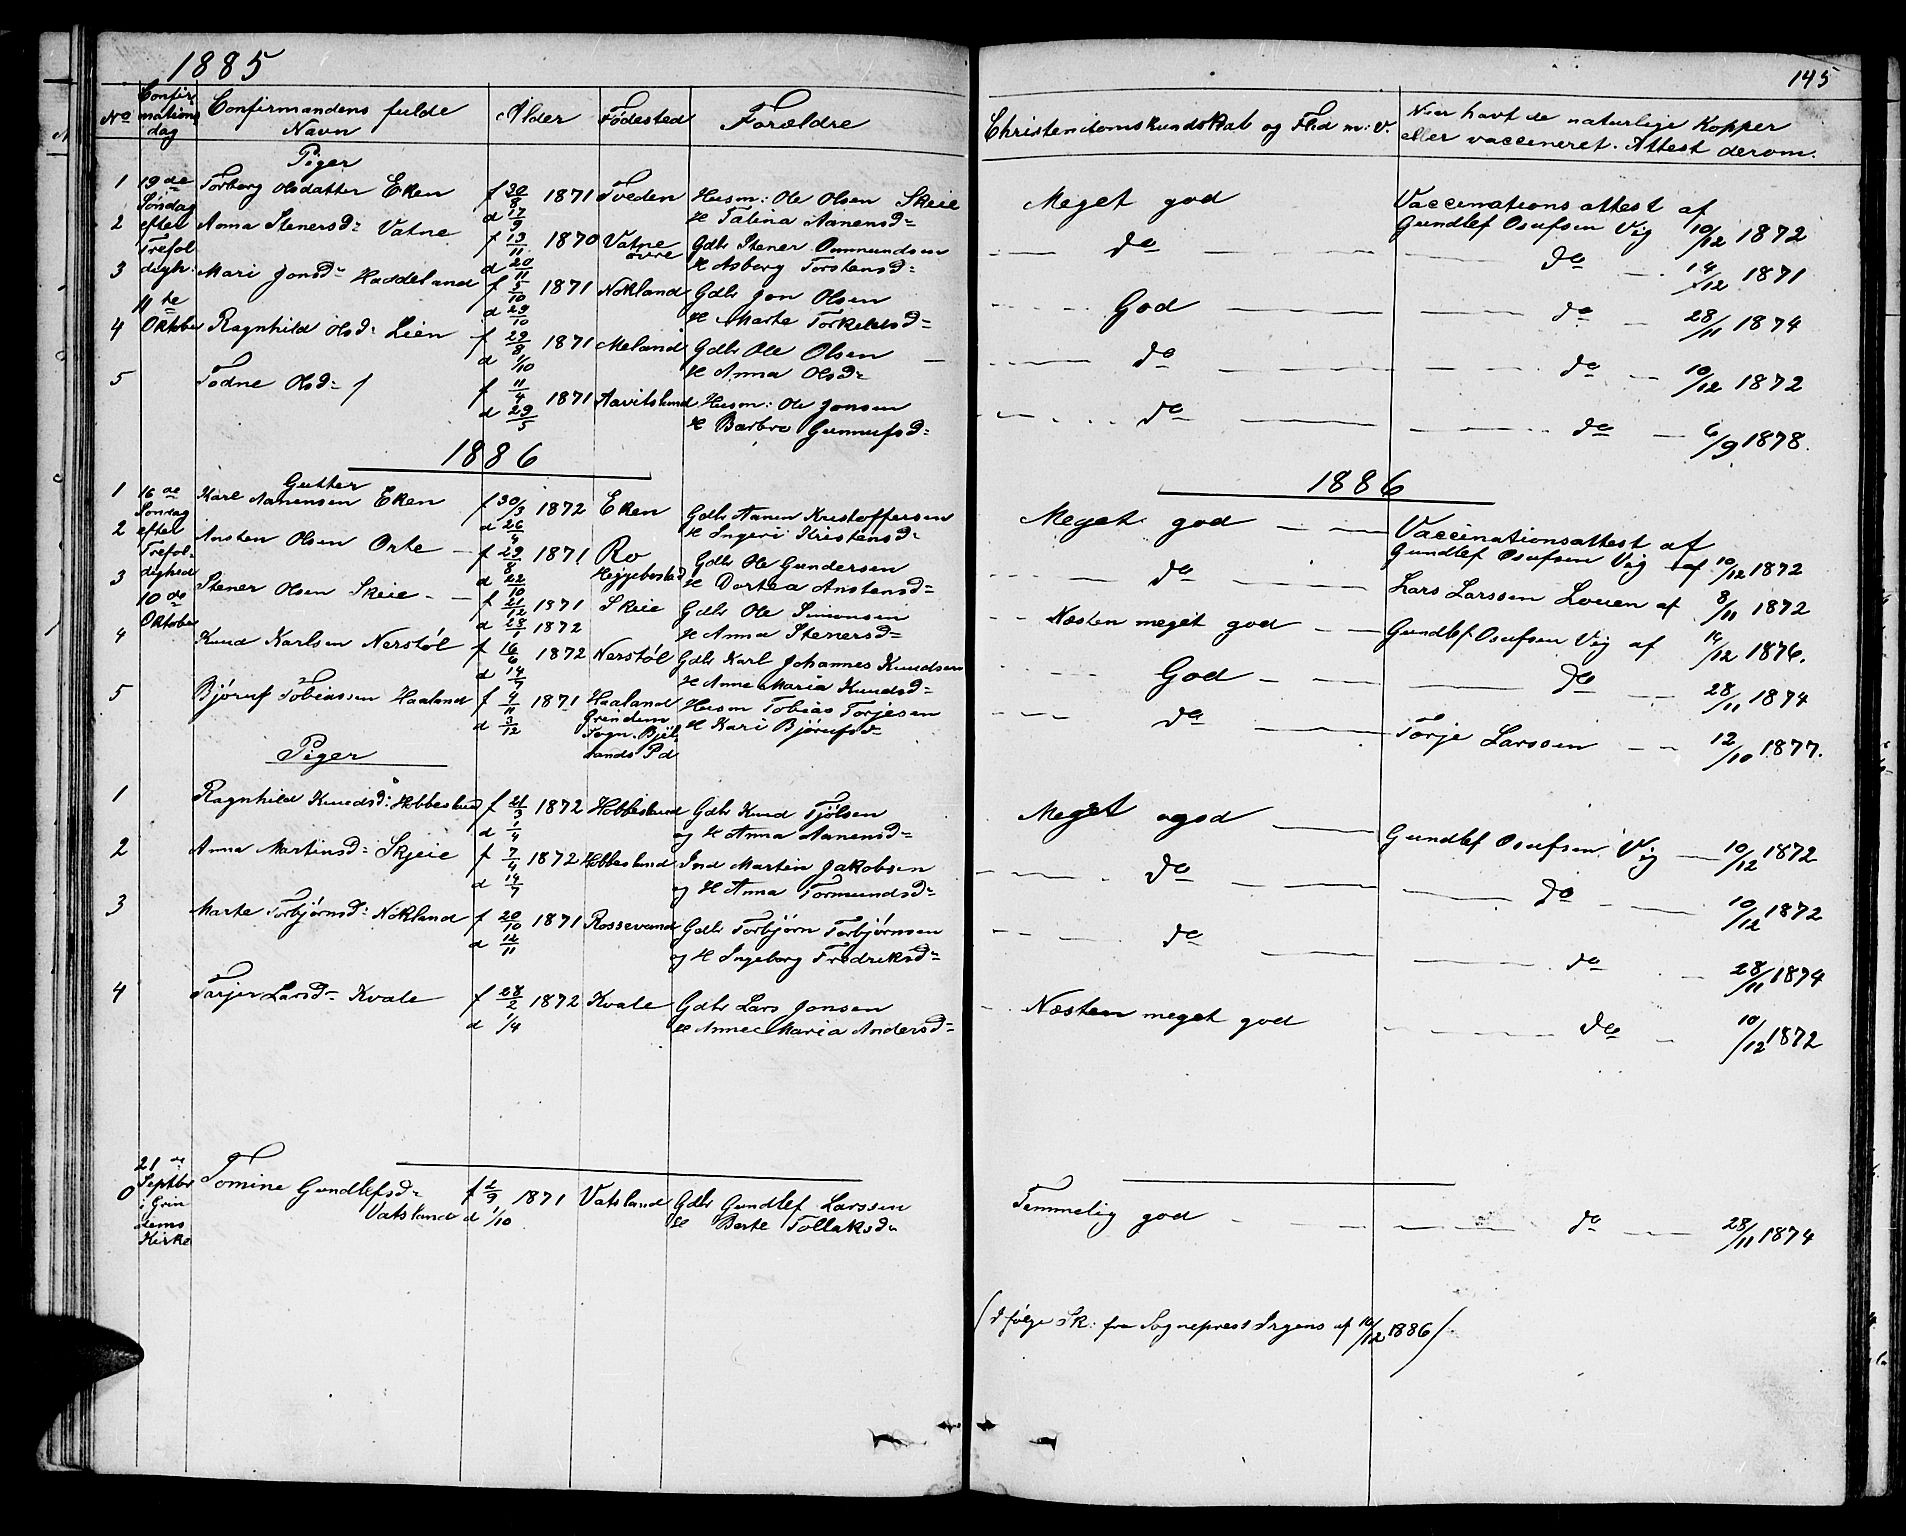 1885
145
No
Confirmations dag
Confirmandens fulde Navn
Alder
Fødested
Forældre
Christendomskundskab og Flid m: v.
Naar havt de naturlige Kopper eller vaccineret. Attest derom.
Piger
19de Søndag efter Trefoldigh: 11te Oktober
1 Torborg Olsdatter Eken f 30/8 1871 Tveden Husm: Ole Olsen Skeie
d 17/9 H Talina Aanensd=
Meget god Vaccinations attest af Gundlef Osufsen Vig 10/12 1872
2 Anna Stenersd= Vatne f 13/11 1870 Vatne øvre Gdbr Stener Omundsen
d 20/11 H Asberg Torstensd=
do do 14/12 1871
3 Mari Jonsd= Haddeland f 5/10 1871 Nökland Gdbr Jon Olsen
d 29/10 H Marte Torkelsd=
God do 28/11 1874
4 Ragnhild Olsd= Lien f 29/8 1871 Meland Gdbr Ole Olsen
d 1/10 H Anna Olsd=
do do 10/12 1872
5 Todne Olsd= / f 11/4 1871 Aavitsland Husm: Ole Jonsen
d 29/5 H Barbro Gunnufsd=
do do 6/9 1878.
1886
1886
Gutter
16de Søndag efter Trefoldighed 10de Oktober
1 Karl Aanensen Eken f 30/3 1872 Eken Gdbr Aanen Kristoffersen
d 26/4 H Ingeri Kristensd=
Meget god Vaccinationsattest af Gundlef Osufsen Vig af 10/12 1872
2 Ansten Olsen Orte f 29/8 1871 Ro Heggebosted Gdbr Ole Gundersen
d 22/10 H Dortea Anstensd=
do Lars Larssen Louen af 8/11 1872
3 Stener Olsen Skeie f 21/12 1871 Skeie Gdbr Ole Simonsen
d 28/1 1872 H Anna Stenersd=
Næsten meget god Gundlef Osufsen Vig af 14/12 1876.
4 Knud Karlsen Nerstøl f 16/6 1872 Nerstøl Gdbr Karl Johannes Knudsen
d 14/7 H Anne Maria Knudsd=
God do 28/11 1874
5 Bjøruf Tobiassen Haaland f 4/11 1871 Haaland Grindem Sogn. Bjellands Pd Husm Tobias Torjesen
d 3/12 H Kari Bjørufsd=
do Torje Larssen 12/10 1877.
Piger
1 Ragnhild Knudsd: Hobbesland f 21/3 1872 Hobbesland Gdbr Knud Tjølsen
d 1/4 og H Anna Aanensd=
Meget god Gundlef Osufsen Vig 10/12 1872
2 Anna Martinsd= Skjeie f 7/4 1872 Hobbesland Ind Martin Jakobsen
d 14/7 og H Anna Tormundsd=
do do 10/12 1872
3 Marte Torbjørnsd= Nökland f 20/10 1871 Rossevand Gdbr Torbjørn Torbjørnsen
d 12/11 og H Ingeborg Fredriksd=
do do 28/11 1874
4 Tarjer Larsd= Kvale f 28/2 1872 Kvale Gdbr Lars Jonsen
d 1/4 H Anne Maria Andersd=
Næsten meget god do 10/12 1872
21de Septbr i Grindems Kirke
0 Tomine Gundlefsd= Vatsland f 2/9 1871 Vatsland Gdbr Gundlef Larssen
d 1/10 H Berte Tollaksd=
Temmelig god do 28/11 1874
/ Ifølge Sk: fra Sogneprest Irgens af 10/12 1886 /